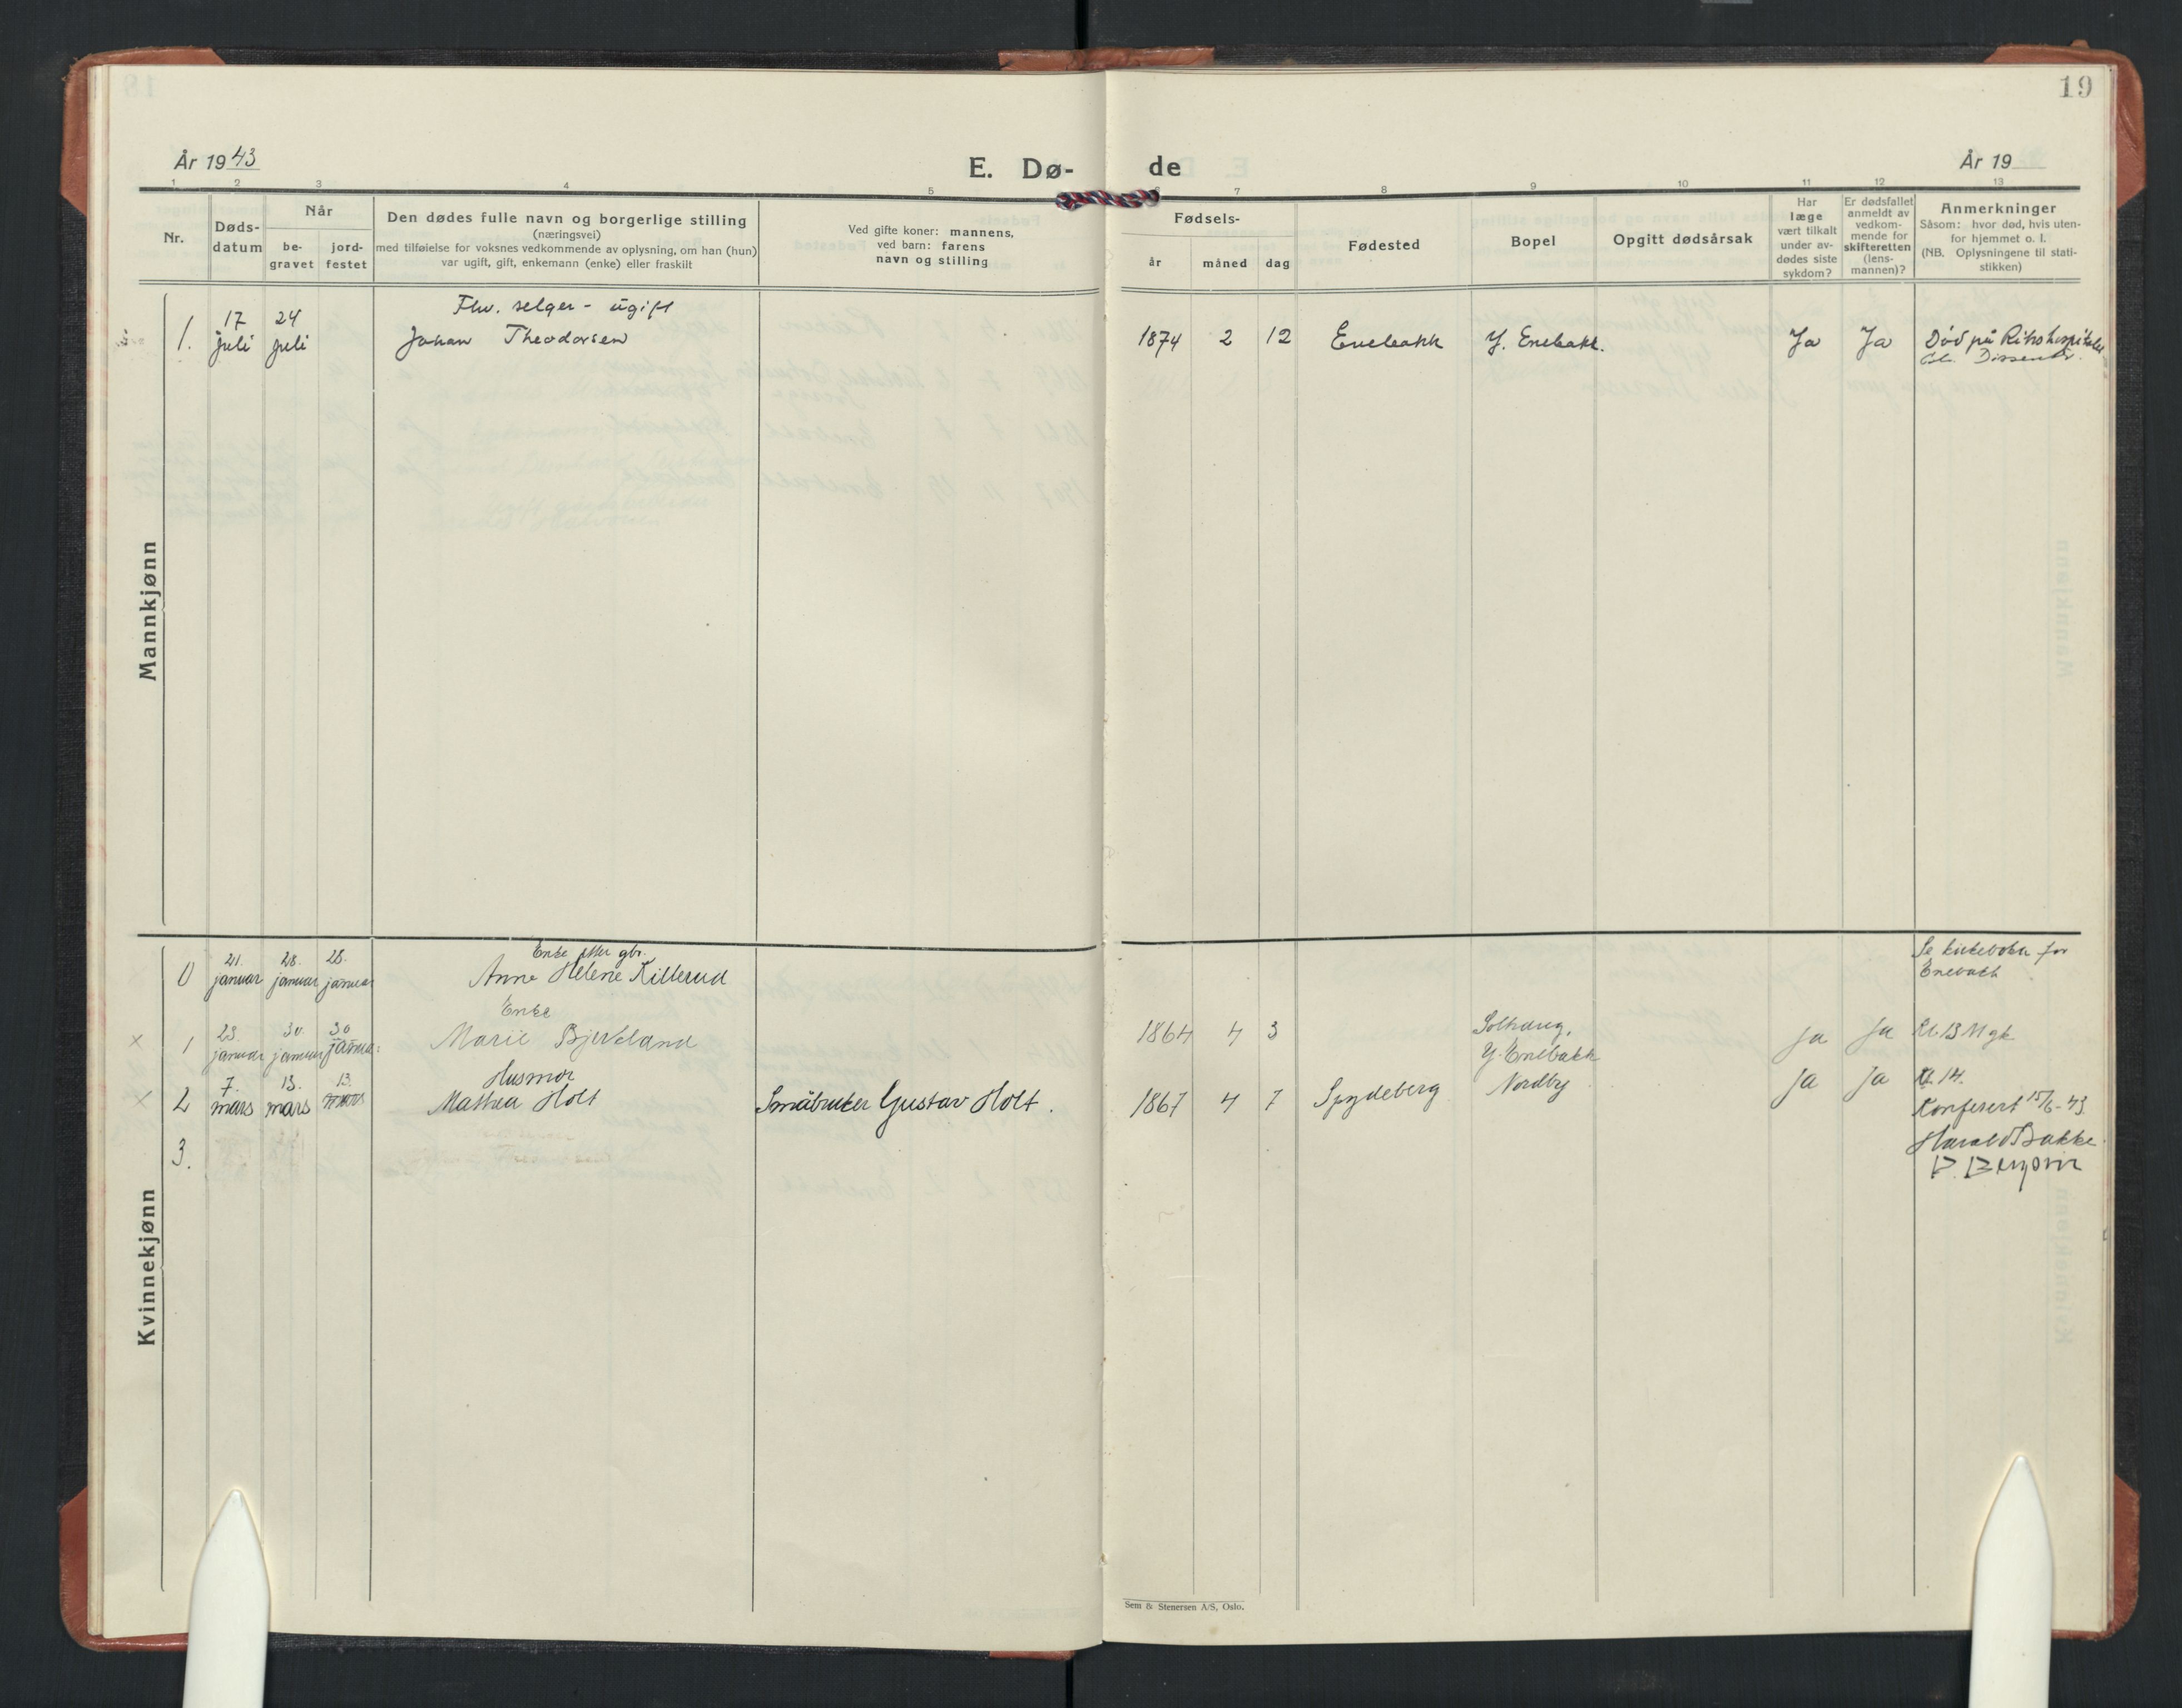 19
År 1943
E. Dø-
de
År 19
1 2 3 4 5 6 7 8 9 10 11 12 13
Nr.
Døds-
datum
Når
be-
gravet
jord-
festet
Den dødes fulle navn og borgerlige stilling
(næringsvei)
med tilføielse for voksnes vedkommende av oplysning, om han (hun)
var ugift, gift, enkemann (enke) eller fraskilt
Ved gifte koner: mannens,
ved barn: farens
navn og stilling
Fødsels-
år måned dag
Fødested
Bopel
Opgitt dødsårsak
Har
læge
vært tilkalt
under av-
dødes siste
sykdom?
Er dødsfallet
anmeldt av
vedkom-
mende for
skifteretten
(lens-
mannen)?
Anmerkninger
Såsom: hvor død, hvis uten-
for hjemmet o. l.
(NB. Oplysningene til stati-
stikken)
Mannkjønn
17 24 Fhv. selger - ugift
1. juli juli Johan Theodorsen 1874 2 12 Enebakk Y. Enebakk. Ja Ja Død på Rikshospitalet
Kvinnekjønn
21. 28. 28. Enke etter gbr. Se kirkeboken for
0 januar januar januar Anne Helene Killerud Enebakk
Enke
23. 30. 30 Solhaug,
1 januar januar januar Marie Bjerkeland 1864 4 3 Y. Enebakk Ja Ja Kl. 13 M gk
7. 13. 13. Husmor
2 mars mars mars Mathea Holt Småbruker Gustav Holt. 1867 4 7 Spydeberg Nordby Ja Ja Kl. 14.
Konferert 15/6-43
3. Harald Bakke
Sem & Stenersen A/S, Oslo.